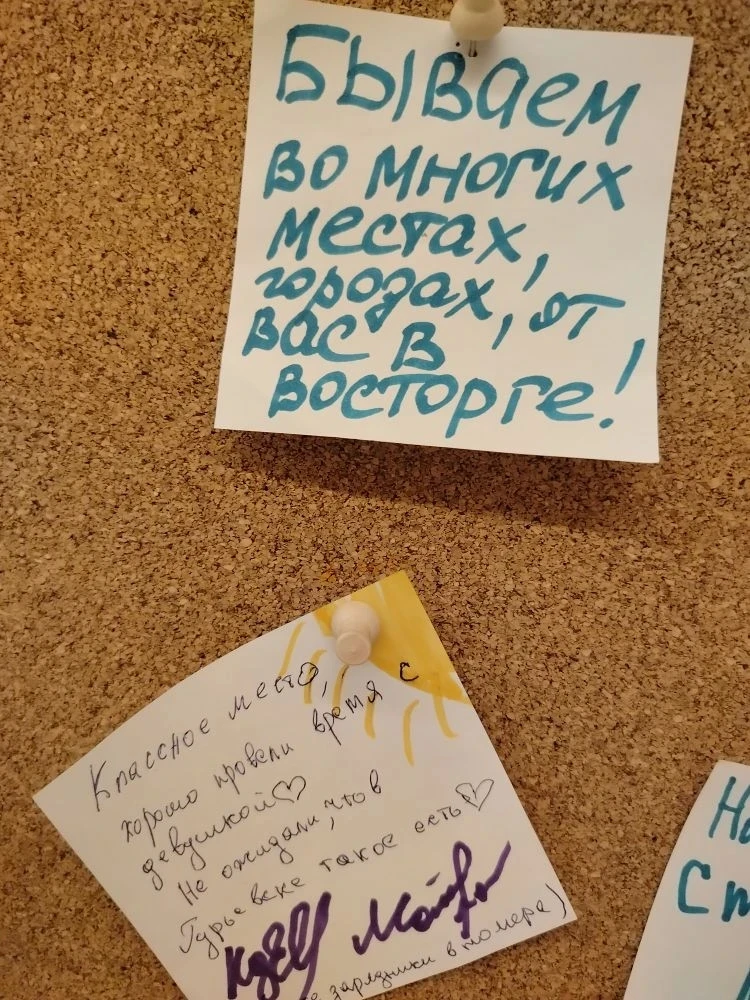 Бываем
во многих
местах,
городах, от
вас в
восторге!
Классное место,
хорошо провели время с
девушкой♡
Не ожидали, что в
Гурьевске такое есть♡
зарядники в номере)
На
Ст